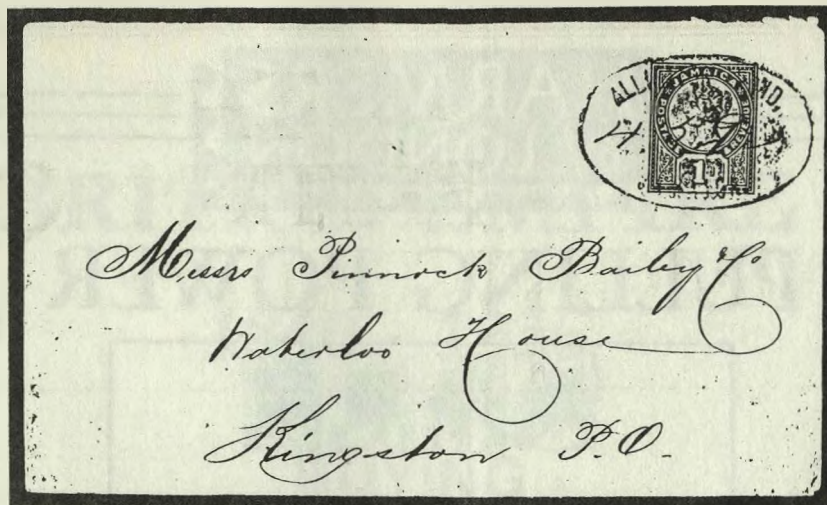 JAMAICA
1
Messrs Pinnock Bailey & Co
Waterloo House
Kingston P.O.